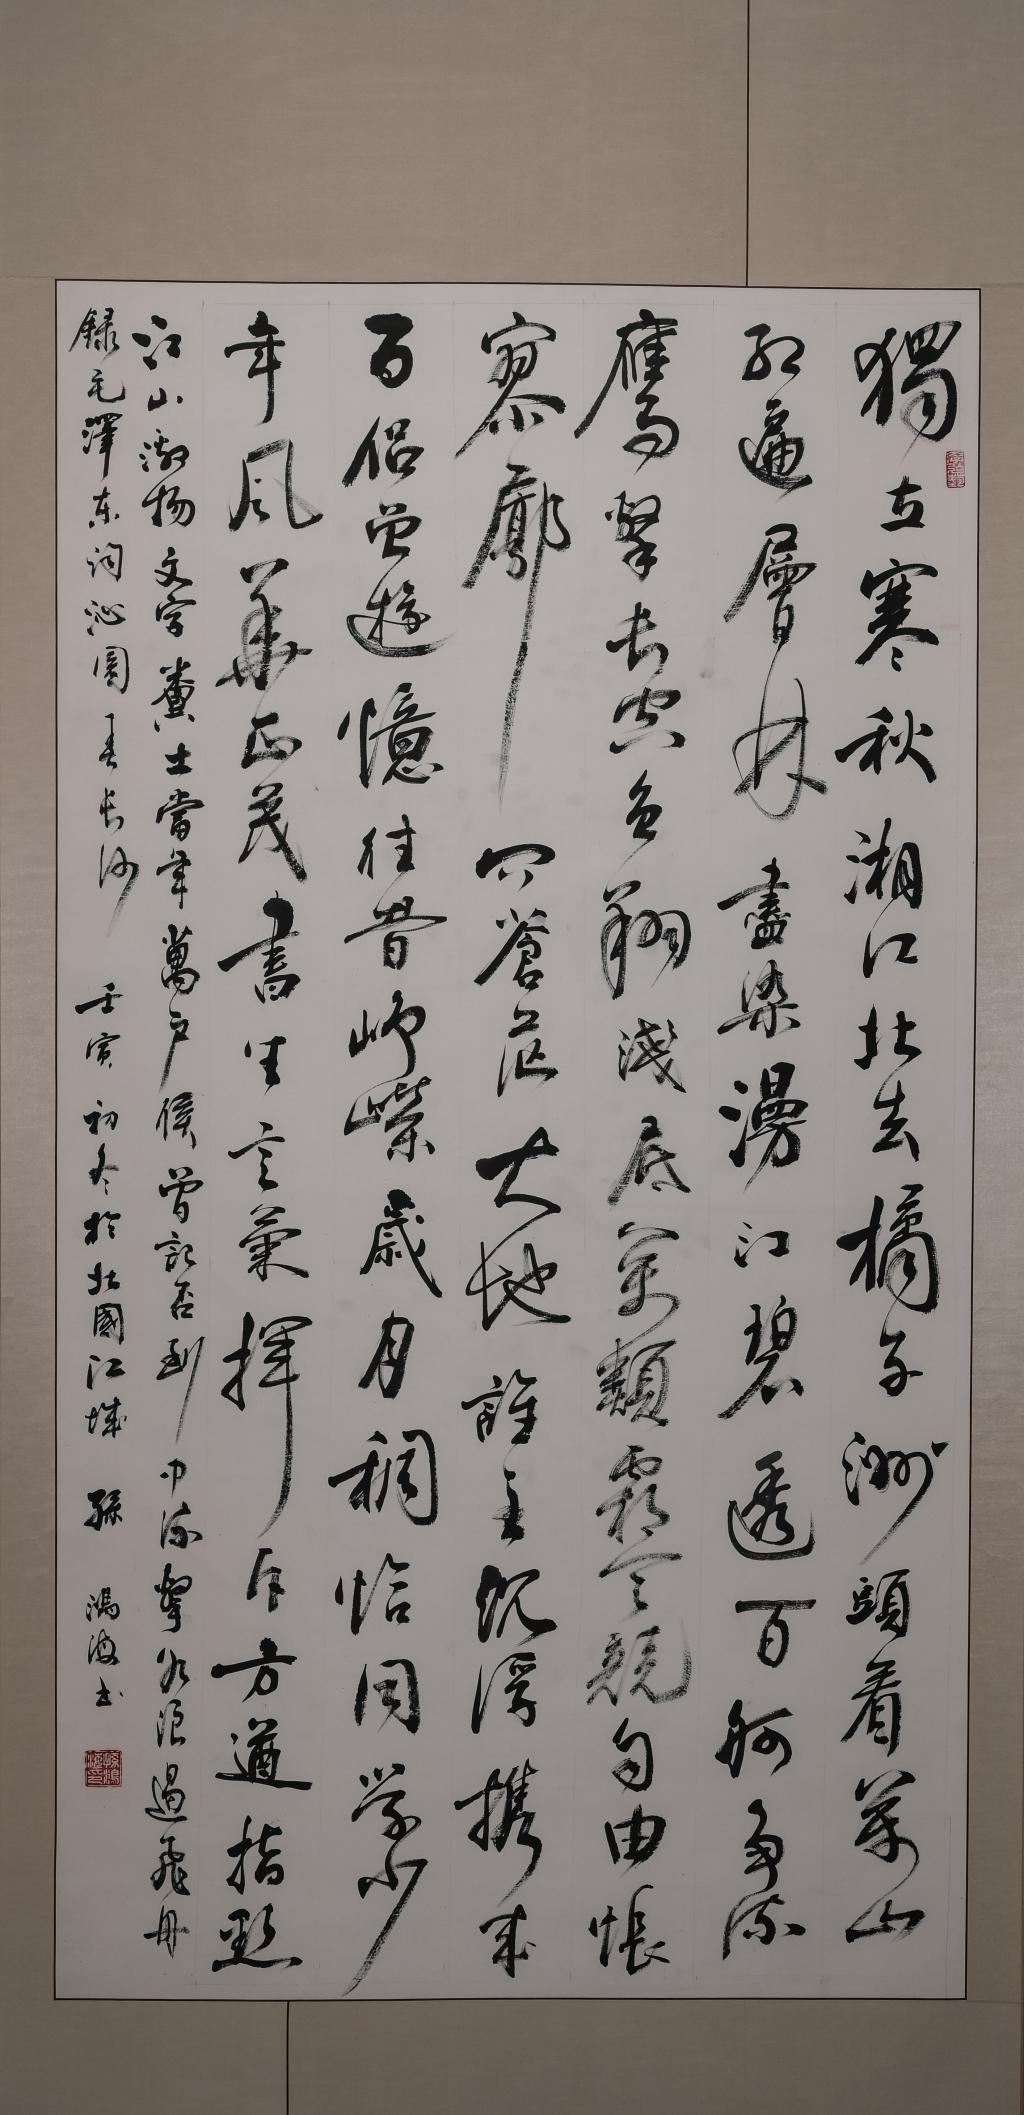 獨立寒秋湘江北去橘子洲頭看萬山
紅遍層林盡染漫江碧透百舸争流
鷹擊長空魚翔淺底萬類霜天競自由悵
寥廓問蒼茫大地誰主沉浮携來
百侣曾遊憶往昔崢嶸歲月稠恰同學少
年風華正茂書生意氣揮斥方遒指點
江山激揚文字糞土當年萬户侯曾記否到中流擊水浪遏飛舟
録毛澤東詞沁園春長沙 壬寅初冬於北國江城 孫鴻